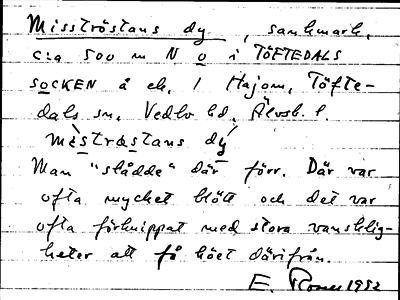 Misströstans dy, sankmark,
c:a 500 m N o i TÖFTEDALS
SOCKEN å ek. 1 Hajom, Töfte-
dals sn, Vedbo hd, Älvsb. l.
mèstrœstans dý
Man "slådde" där förr. Där var
ofta mycket blött och det var
ofta förknippat med stora vansklig-
heter att få höet därifrån.
E. 1952